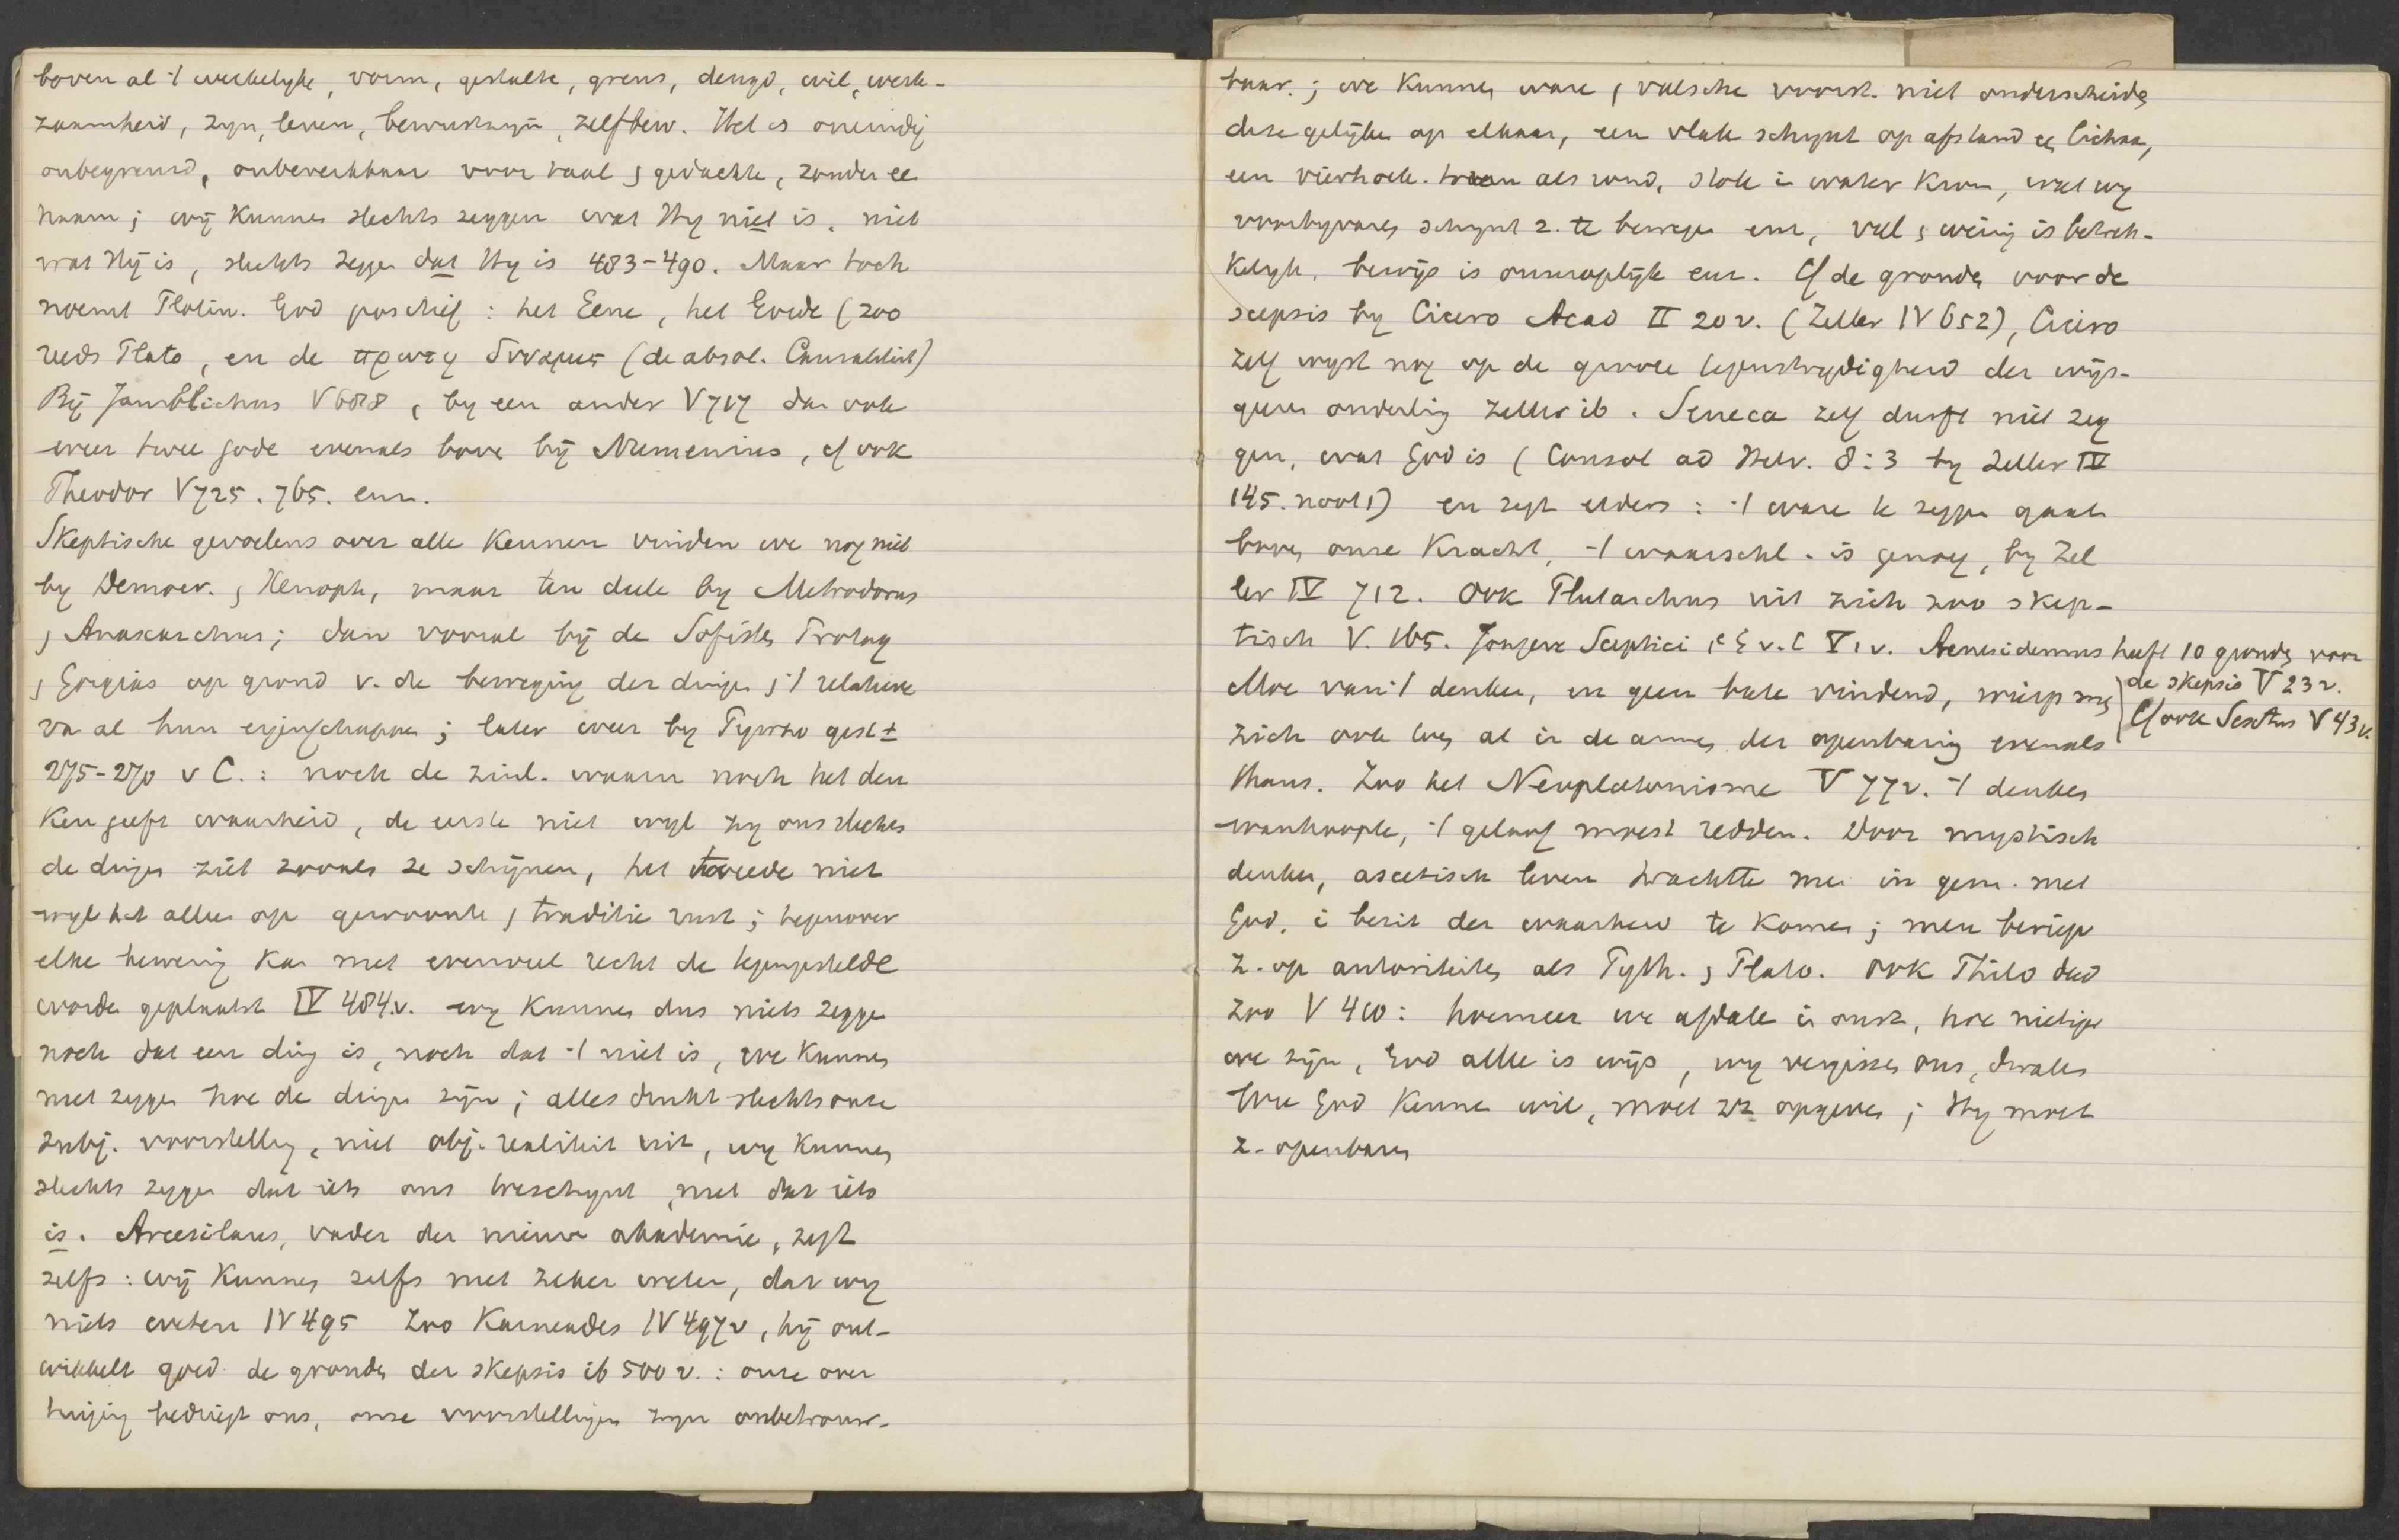 boven al 't werkelyke, vorm, gestalte, grens, deugd, wil, werk-
zaamheid, zyn, leven, bewustzyn, zelfbew. Het is oneindig
onbegrensd, onbereikbaar voor taal & gedachte, zonder ee
naam; wij kunnen slechts zeggen wat Hy niet is, niet
wat Hij is, slechts zegge dat Hy is 483-490. Maar toch
noemt Plotin. God positief: het Eene, het Goede (zoo
reeds Plato, en de πρωτη δυναμις (de absol. Causaliteit)
Bij Jamblichus V 688, by een ander V 717 dan ook
weer twee gode evenals bove bij Numenius, cf ook
Theodor V 725. 765. enz.
Skeptische gevoelens over alle kennen vinden we nog niet
by Democr. & Xenoph, maar ten deele by Metrodorus
& Anaxarchus; dan vooral bij de Sofiste Protag
& Gorgias op grond v. de beweging der dinge & 't relatieve
va al hun eigenschappe; later weer by Pyrrho gest ±
275-270 v C.: noch de zinl. waarn noch het den
ken geeft waarheid, de eerste niet wyl zy ons slechts
de dinge ziet zooals ze schijnen, het tweede niet
wyl het alles op gewoonte & traditie rust; tegenover
elke bewering kan met evenveel recht de tegengestelde
worde geplaatst IV 484.v. wy kunne dus niets zegge
noch dat een ding is, noch dat 't niet is, we kunne
niet zegge hoe de dinge zijn; alles drukt slechts onze
subj. voorstelling, niet obj. realiteit uit, wy kunne
slechts zegge dat iets ons toeschynt, niet dat iets
is. Arcesilaus, vader der nieuwe akademie, zegt
zelfs: wij kunne zelfs niet zeker weten, dat wy
niets weten IV 495 Zoo Karneades IV 497v, hij ont-
wikkelt goed de gronde der skepsis ib 500 v.: onze over
tuiging bedriegt ons, onze voorstellingen zyn onbetrouw-
baar.; we kunne ware & valsche voorst. niet onderscheide
deze gelijken op elkaar, een vlak schynt op afstand ee lichaa,
een vierhoek. toren als rond, stok i water krom, wat wy
voorbyvare schynt z. te bewege enz, veel & weinig is betrek-
kelyk, bewijs is onmogelijk enz. Cf de gronde voor de
scepsis by Cicero Acad II 20 v. (Zeller IV 652), Cicero
zelf wyst nog op de groote tegenstrydigheid der wijs-
geere onderling Zeller ib. Seneca zelf durft niet zeg
gen, wat God is (Consol ad Helv. 8:3 by Zeller IV
145. noot 1) en zegt elders: 't ware te zegge gaat
bove onze kracht, 't waarschl. is genoeg, by Zel
ler IV 712. Ook Plutarchus uit zich zoo skep-
tisch V. 165. Jongere Sceptici 1e E v. C V 1 v. Aenesidemus heeft 10 gronde voor
de skepsis V 23 v.
Cf ook Sextus V 43 v.
Moe van 't denken, en geen bate vindend, wierp me
zich ook toe al in de armen der openbaring evenals
thans. Zoo het Neuplatonisme V 77v. 't denke
wanhoopte, 't geloof moest redden. Door mystisch
denken, ascetisch leven trachtte me in gem. met
God, i bezit der waarheid te kome; men beriep
z. op autoriteite als Pyth. & Plato. Ook Philo deed
zoo V 410: hoemeer we afdale i onsz, hoe nietige
we zijn, God alle is wijs, wy vergisse ons, dwale
Wie God kenne wil, moet zz opgeve; Hy moet
z. openbare